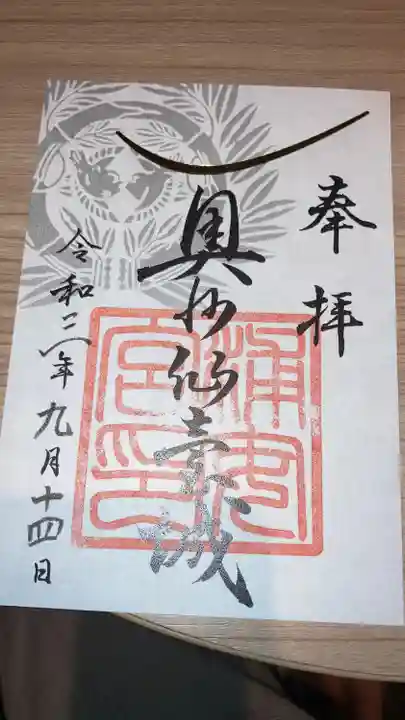 奉拝
奥州仙臺城
浦安
宮印
令和二年九月十四日